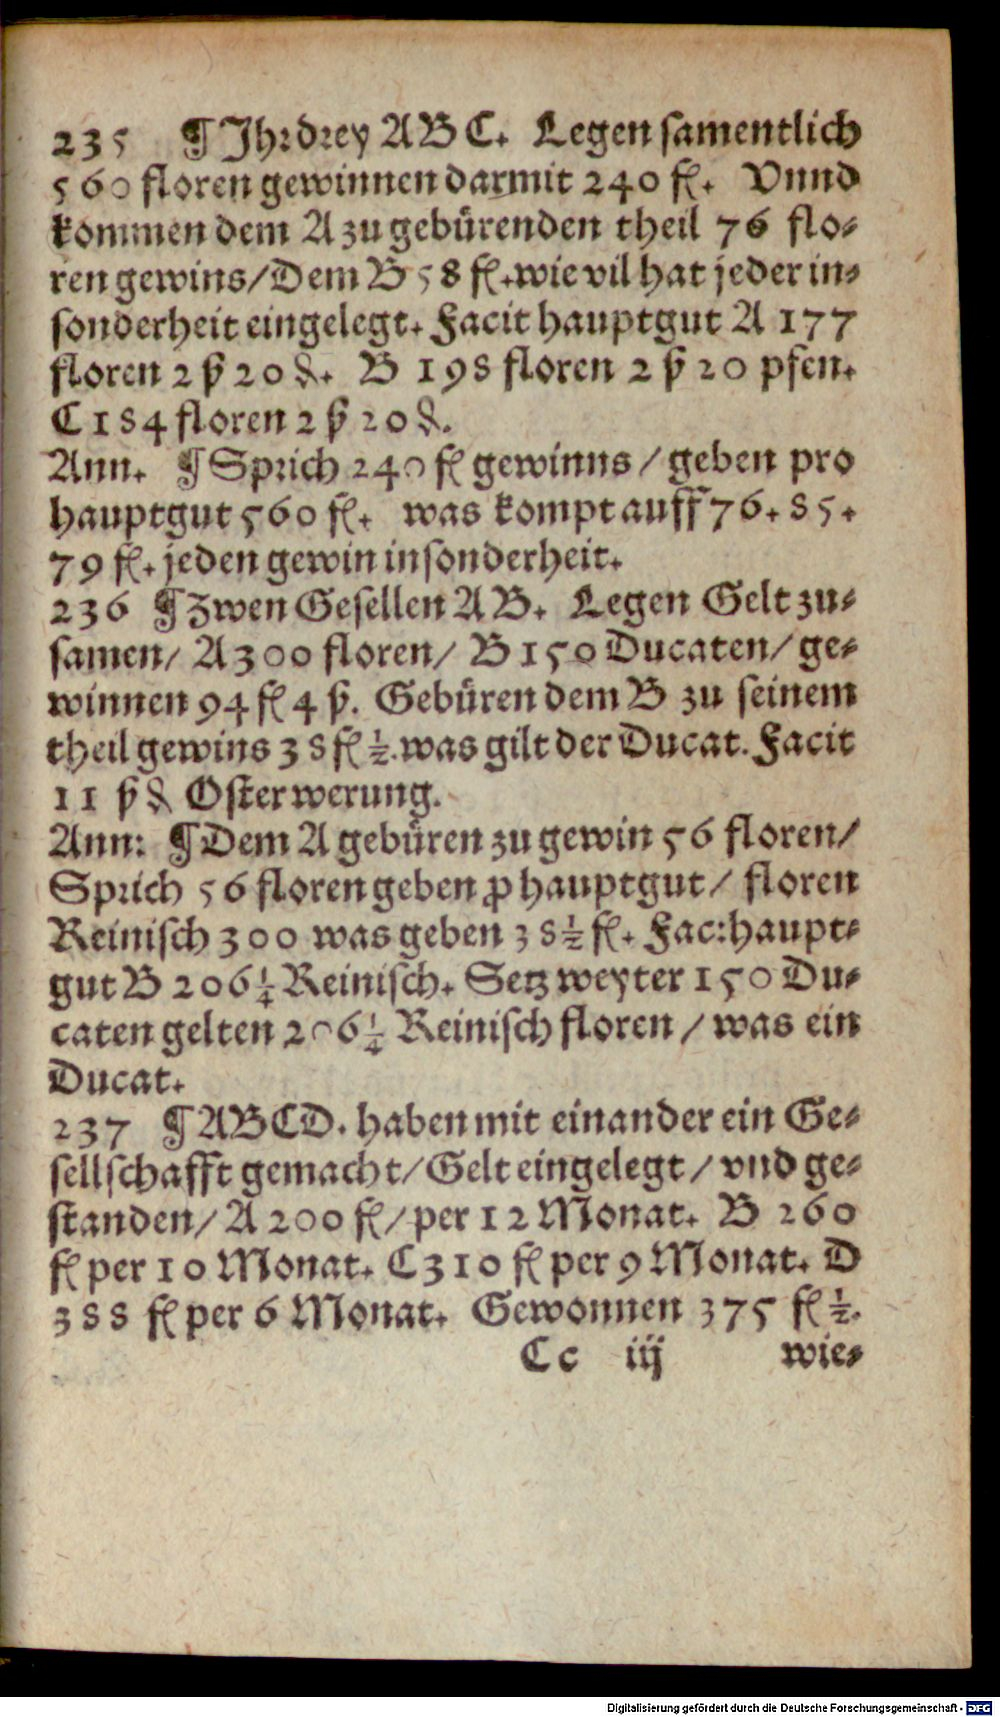 235 ¶ Jhr drey A B C. Legen samentlich
560 floren gewinnen darmit 240 fl. Vnnd
kommen dem A zu gebürenden theil 76 flo-
ren gewins/Dem B 58 fl. wie vil hat jeder in-
sonderheit eingelegt. Facit hauptgut A 177
floren 2 ß 20 ₰. B 198 floren 2 ß 20 pfen.
C 184 floren 2 ß 20 ₰.
Ann. ¶ Sprich 240 fl gewinns / geben pro
hauptgut 560 fl. was kompt auff 76. 85.
79 fl. jeden gewin insonderheit.
236 ¶ Zwen Gesellen A B. Legen Gelt zu-
samen/ A 300 floren/ B 150 Ducaten/ ge-
winnen 94 fl 4 ß. Gebüren dem B zu seinem
theil gewins 38 fl ½. was gilt der Ducat. Facit
11 ß ₰ Osterwerung.
Ann: ¶ Dem A gebüren zu gewin 56 floren/
Sprich 56 floren geben ꝓ hauptgut/ floren
Reinisch 300 was geben 38½ fl. Fac: haupt-
gut B 206¼ Reinisch. Setz weyter 150 Du-
caten gelten 206¼ Reinisch floren / was ein
Ducat.
237 ¶ ABCD. haben mit einander ein Ge-
sellschafft gemacht/Gelt eingelegt / vnd ge-
standen/ A 200 fl/ per 12 Monat. B 260
fl per 10 Monat. C 310 fl per 9 Monat. D
388 fl per 6 Monat. Gewonnen 375 fl ½.
Cc iij wie-
Digitalisierung gefördert durch die Deutsche Forschungsgemeinschaft - DFG